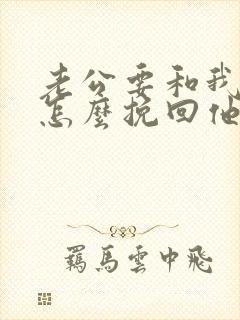 老公要和我
怎麼挽回他
羈馬雲中飛